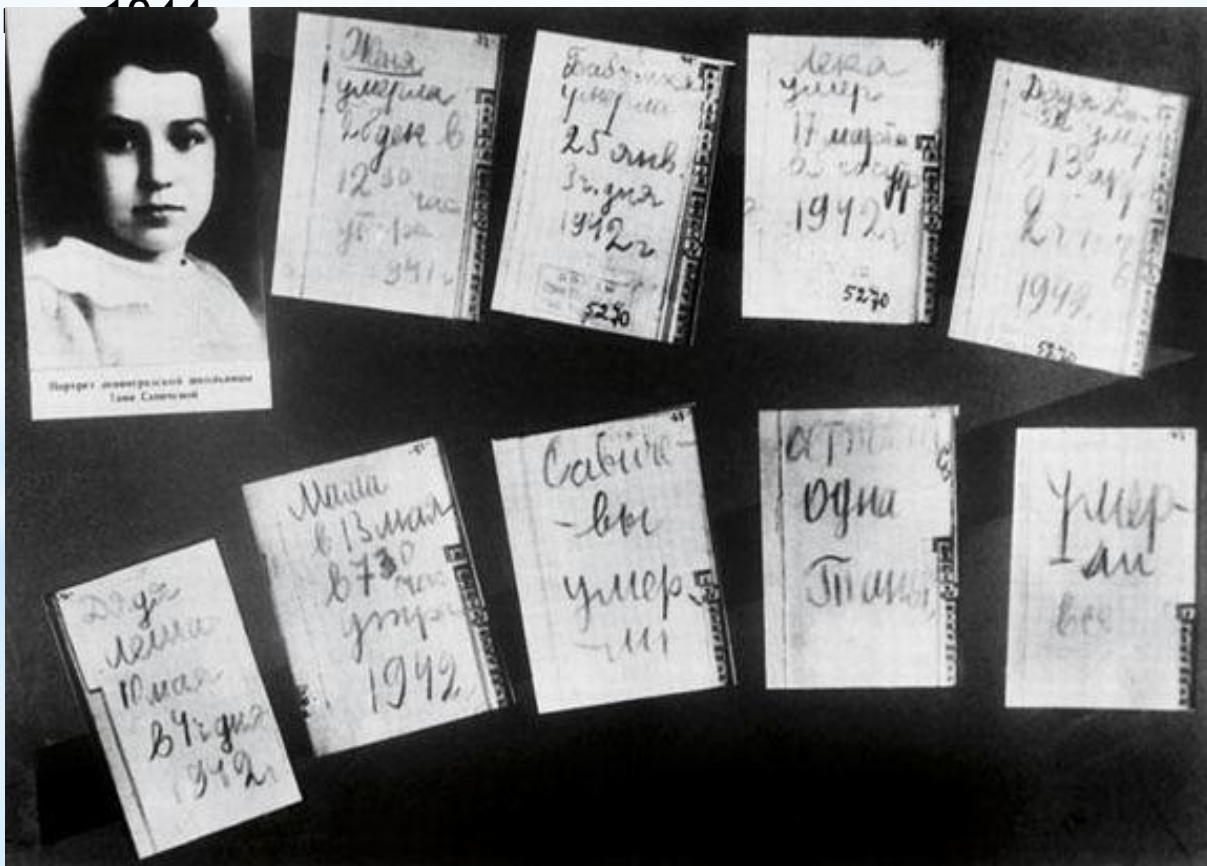 1944
Портрет ленинградской школьницы
Тани Савичевой
Женя
умерла
28 дек в
12 30
час
утра
941 г
Бабушка
умерла
25 янв.
3 ч. дня
1942 г
5270
Лека
умер
17 марта
1942 г
5270
Дядя Ва-
13 апр
2 ч
1942
5270
Дядя
Леша
10 мая
в 4 ч дня
1942 г
Мама
в 13 мая
в 7 30
час
утра
1942
Савиче-
-вы
умер
-ли
одна
Таня
умер-
-ли
все